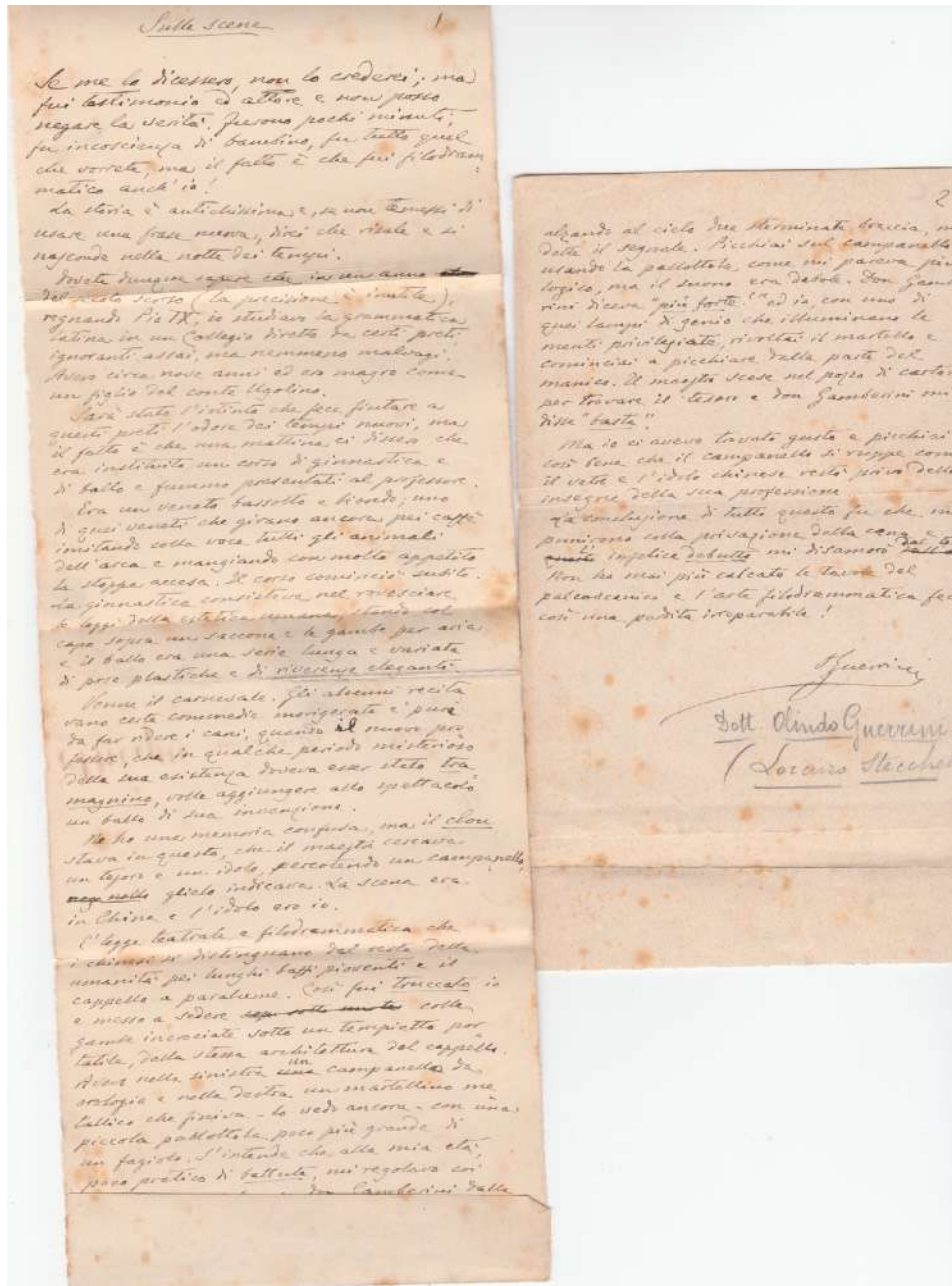 Sulle scene
1
Se me lo dicessero, non lo crederei; ma
fui testimonio ed attore e non posso
negare la verità. Furono pochi minuti;
fu incoscienza di bambino, fu tutto quel
che vorrete, ma il fatto è che fui filodram-
matico anch'io!
La storia è antichissima e, se non temessi di
usare una frase nuova, direi che risale e si
nasconde nella notte dei tempi.
Dovete dunque sapere che in un anno
del secolo scorso (la precisione è inutile),
regnando Pio IX, io studiavo la grammatica
latina in un Collegio diretto da certi preti
ignoranti assai, ma nemmeno malvagi.
Avevo circa nove anni ed ero magro come
un figlio del conte Ugolino.
Sarà stato l'istinto che fece fiutare a
questi preti l'odore dei tempi nuovi, ma
il fatto è che una mattina ci dissero che
era instituito un corso di ginnastica e
di ballo e fummo presentati al professore.
Era un veneto bassotto e biondo, uno
di quei veneti che girano ancora pei caffè
imitando colla voce tutti gli animali
dell'arca e mangiando con molto appetito
la stoppa accesa. Il corso cominciò subito.
La ginnastica consisteva nel rovesciare
le leggi della estetica umana, stando col
capo sopra un saccone e le gambe per aria
e il ballo era una serie lunga e variata
di pose plastiche e di riverenze eleganti.
Venne il carnevale. Gli alunni recita
vano certe commedie morigerate e pure
da far ridere i cani, quando il nuovo pro
fessore, che in qualche periodo misterioso
della sua esistenza doveva esser stato tra
magnino, volle aggiungere allo spettacolo
un ballo di sua invenzione.
Ne ho una memoria confusa, ma il clou
stava in questo, che il maestro cercava
un tesoro e un idolo, percotendo un campanello,
glielo indicava. La scena era
in China e l'idolo ero io.
È legge teatrale e filodrammatica che
i chinesi si distinguano dal resto della
umanità pei lunghi baffi pioventi e il
cappello a paralume. Così fui truccato io
e messo a sedere colle
gambe incrociate sotto un tempietto por
tatile, della stessa architettura del cappello.
Avevo nella sinistra un campanello da
orologio e nella destra un martellino me
tallico che finiva - lo vedo ancora - con una
piccola pallottola poco più grande di
un fagiolo. S'intende che alla mia età,
poco pratico di battute, mi regolavo coi
don Gamberini dalle
2
alzando al cielo due sterminate braccia, mi
dette il segnale. Picchiai sul campanello
usando la pallottola, come mi pareva più
logico, ma il suono era debole. Don Gambe
rini diceva "più forte!" ed io con uno di
quei lampi di genio che illuminano le
menti privilegiate, rivoltai il martello e
cominciai a picchiare dalla parte del
manico. Il maestro scese nel pozzo di cartone
per trovare il tesoro e don Gamberini mi
disse "basta"
Ma io ci avevo trovato gusto e picchiai
così bene che il campanello si ruppe come
il vetro e l'idolo chinese restò privo delle
insegne della sua professione
La conclusione di tutto questo fu che mi
punirono colla privazione della cena e
infelice debutto mi disamorò
Non ho mai più calcato le tavole del
palcoscenico e l'arte filodrammatica fece
così una perdita irreparabile!
O Guerrini
Dott. Olindo Guerrini
(Lorenzo Stecchetti